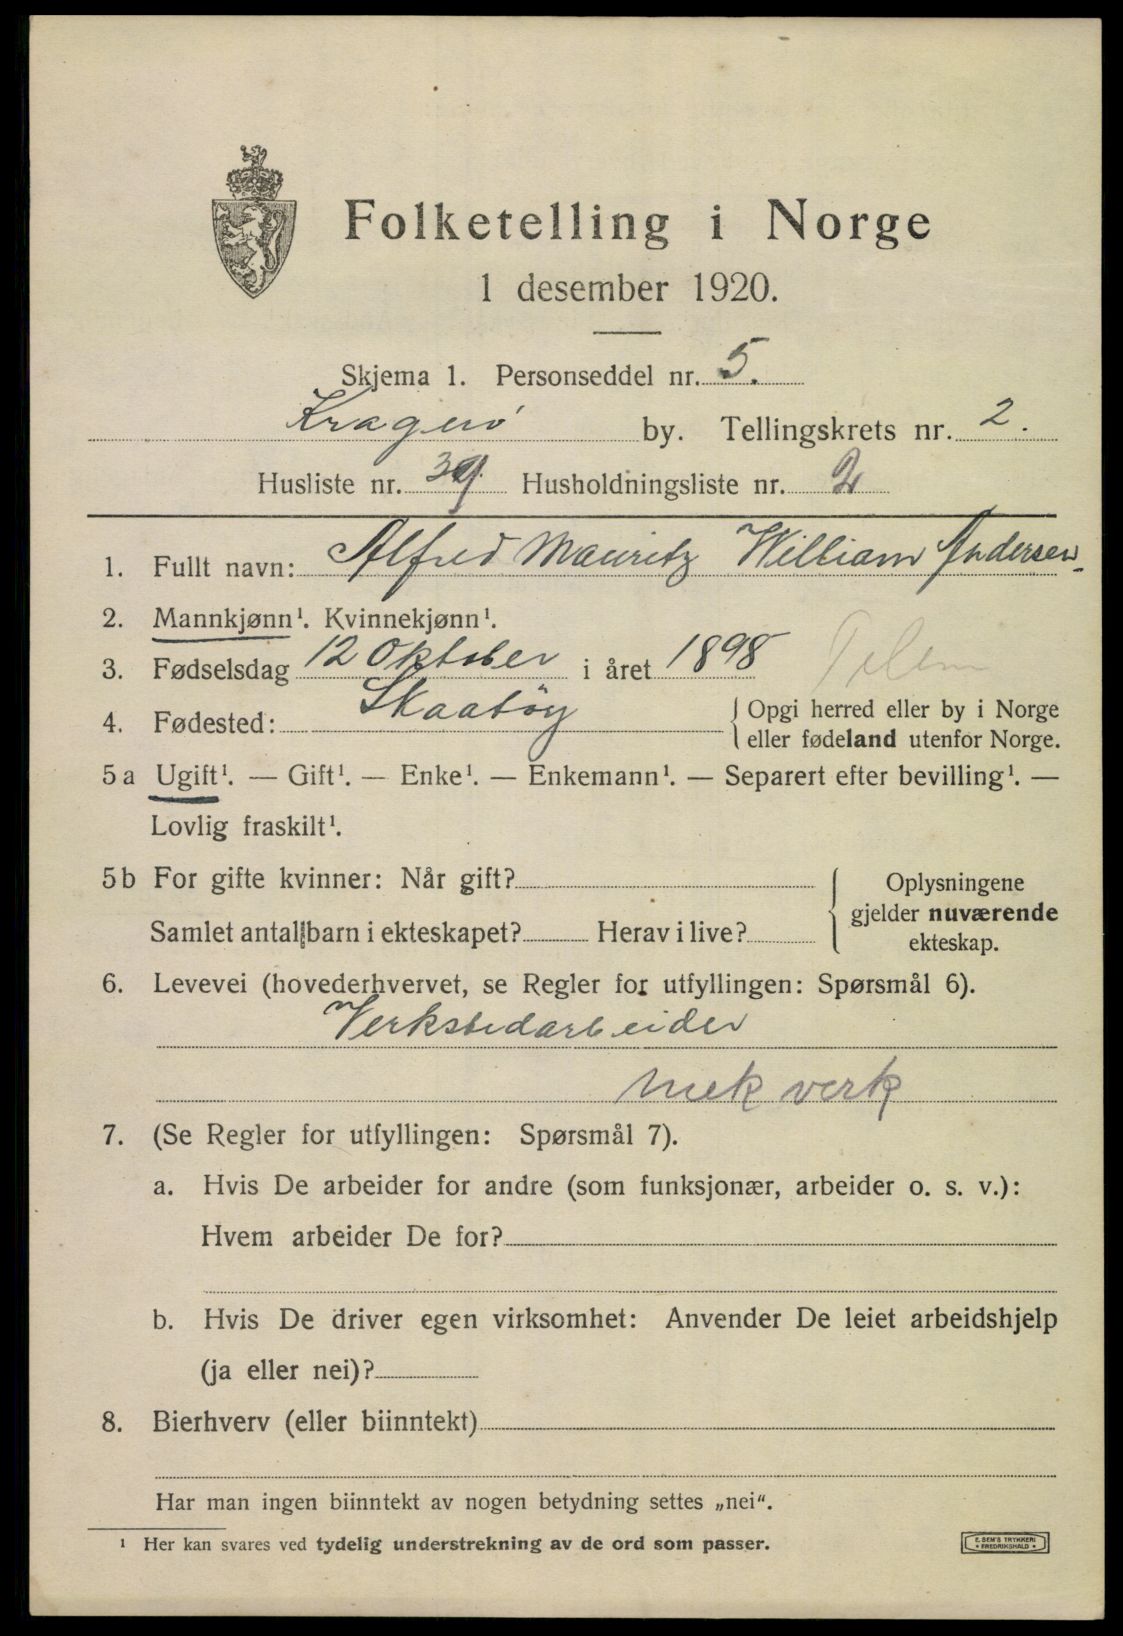 Folketelling i Norge
1 desember 1920.
Skjema 1. Personseddel nr. 5.
Kragerö by. Tellingskrets nr. 2.
Husliste nr. 39 Husholdningsliste nr. 2
1. Fullt navn: Alfred Mauritz William Andersen
2. Mannkjønn¹. Kvinnekjønn¹.
3. Fødselsdag 12 Oktober i året 1898
4. Fødested: Skaatöy { Opgi herred eller by i Norge
eller fødeland utenfor Norge.
5a Ugift¹. — Gift¹. — Enke¹. — Enkemann¹. — Separert efter bevilling¹. —
Lovlig fraskilt¹.
5b For gifte kvinner: Når gift?
Samlet antall barn i ekteskapet? Herav i live?
Oplysningene
gjelder nuværende
ekteskap.
6. Levevei (hovederhvervet, se Regler for utfyllingen: Spørsmål 6).
Verkstedarbeider
mek verk
7. (Se Regler for utfyllingen: Spørsmål 7).
a. Hvis De arbeider for andre (som funksjonær, arbeider o. s. v.):
Hvem arbeider De for?
b. Hvis De driver egen virksomhet: Anvender De leiet arbeidshjelp
(ja eller nei)?
8. Bierhverv (eller biinntekt)
Har man ingen biinntekt av nogen betydning settes „nei".
¹ Her kan svares ved tydelig understrekning av de ord som passer.
E. SEM'S TRYKKERI
• FREDRIKSHALD •